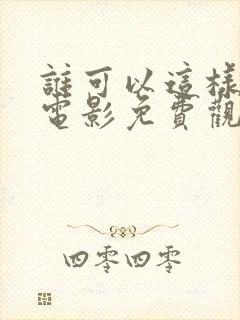 誰可以這樣
電影免費觀
四零四零